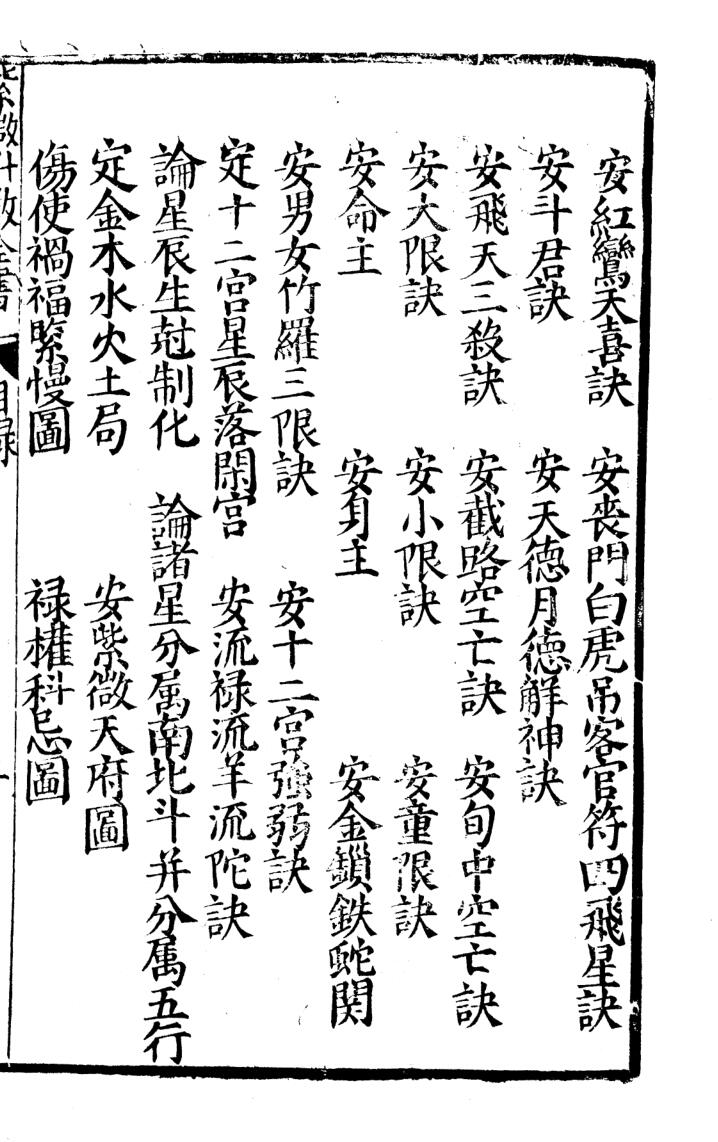 安紅鸞天喜訣　安喪門白虎吊客官符四飛星訣
安斗君訣　安天德月德解神訣
安飛天三殺訣　安截路空亡訣　安旬中空亡訣
安大限訣　安小限訣　安童限訣
安命主　安身主　安金鎖鉄蛇関
安男女竹羅三限訣　安十二宮強弱訣
定十二宮星辰落閑宮　安流禄流羊流陀訣
論星辰生尅制化　論諸星分属南北斗并分属五行
定金木水火土局　安紫微天府圖
傷使禍福緊慢圖　禄權科忌圖
紫微斗数全書　目録　一